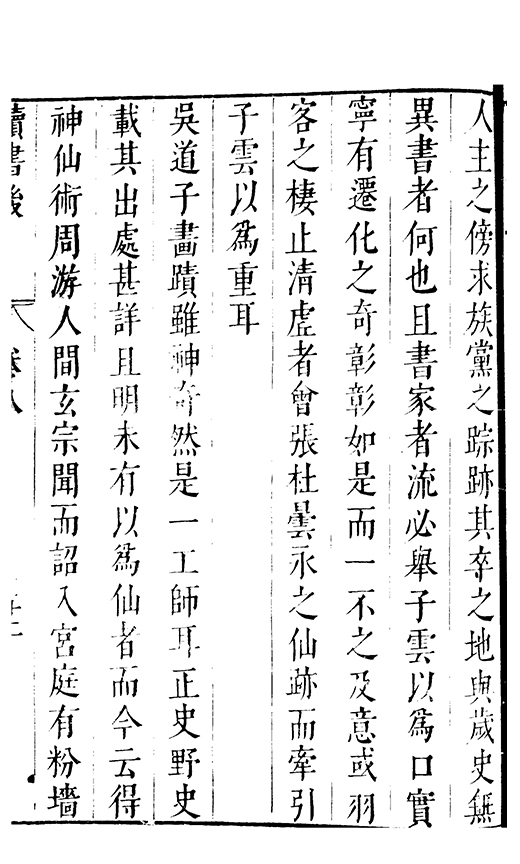 人主之傍求族黨之踪跡其卒之地與歲史無
異書者何也且書家者流必舉子雲以爲口實
寧有遷化之奇彰彰如是而一不之及意或羽
客之棲止清虛者會張杜曇永之仙跡而牽引
子雲以爲重耳
吳道子畫蹟雖神奇然是一工師耳正史野史
載其出處甚詳且明未有以爲仙者而今云得
神仙術周游人間玄宗聞而詔入宮庭有粉墻
讀書後
卷八